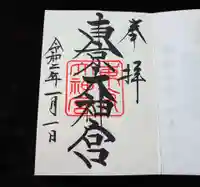 奉拝
東京大神宮
令和二年一月一日